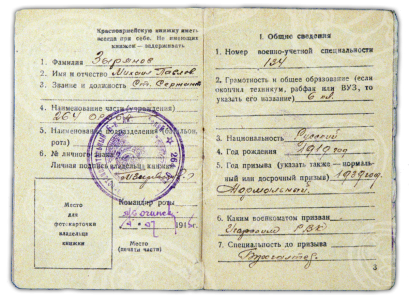 Красноармейскую книжку иметь
всегда при себе. Не имеющих
книжек — задерживать
1. Фамилия Зырянов
2. Имя и отчество Михаил Павлов
3. Звание и должность Ст. Сержант
4. Наименование части (учреждения)
264
5. Наименование подразделения (батальон,
рота)
6. № личного знака
Личная подпись владельца книжки
Командир роты
194 г.
Место
для
фотокарточки
владельца
книжки
Место
(печати части)
I. Общие сведения
1. Номер военно-учетной специальности
134
2. Грамотность и общее образование (если
окончил техникум, рабфак или ВУЗ, то
указать его название) 6 кл.
3. Национальность Русский
4. Год рождения 1910 год
5. Год призыва (указать также — нормаль-
ный или досрочный призыв) 1939 год.
Нормальный
6. Каким военкоматом призван
РВК
7. Специальность до призыва
Бухгалтер
3